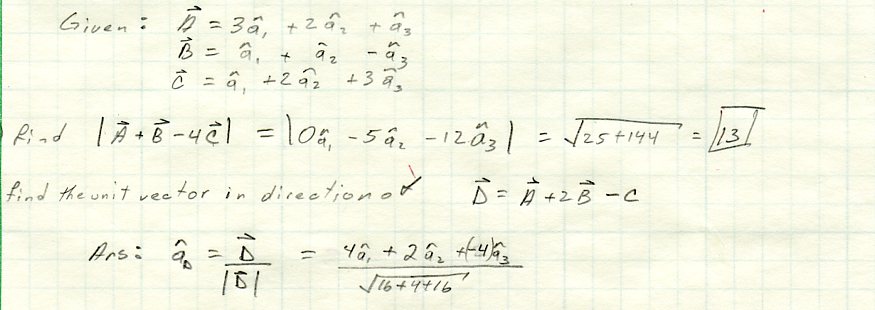 Given: A⃗ = 3â₁ + 2â₂ + â₃
B⃗ = â₁ + â₂ - â₃
C⃗ = â₁ + 2â₂ + 3â₃
find |A⃗ + B⃗ - 4C⃗| = |0â₁ - 5â₂ - 12â₃| = √(25+144) = 13
find the unit vector in direction of D⃗ = A⃗ + 2B⃗ - C
Ans: â_D = D⃗/|D⃗| = (4â₁ + 2â₂ + (-4)â₃)/√(16+4+16)